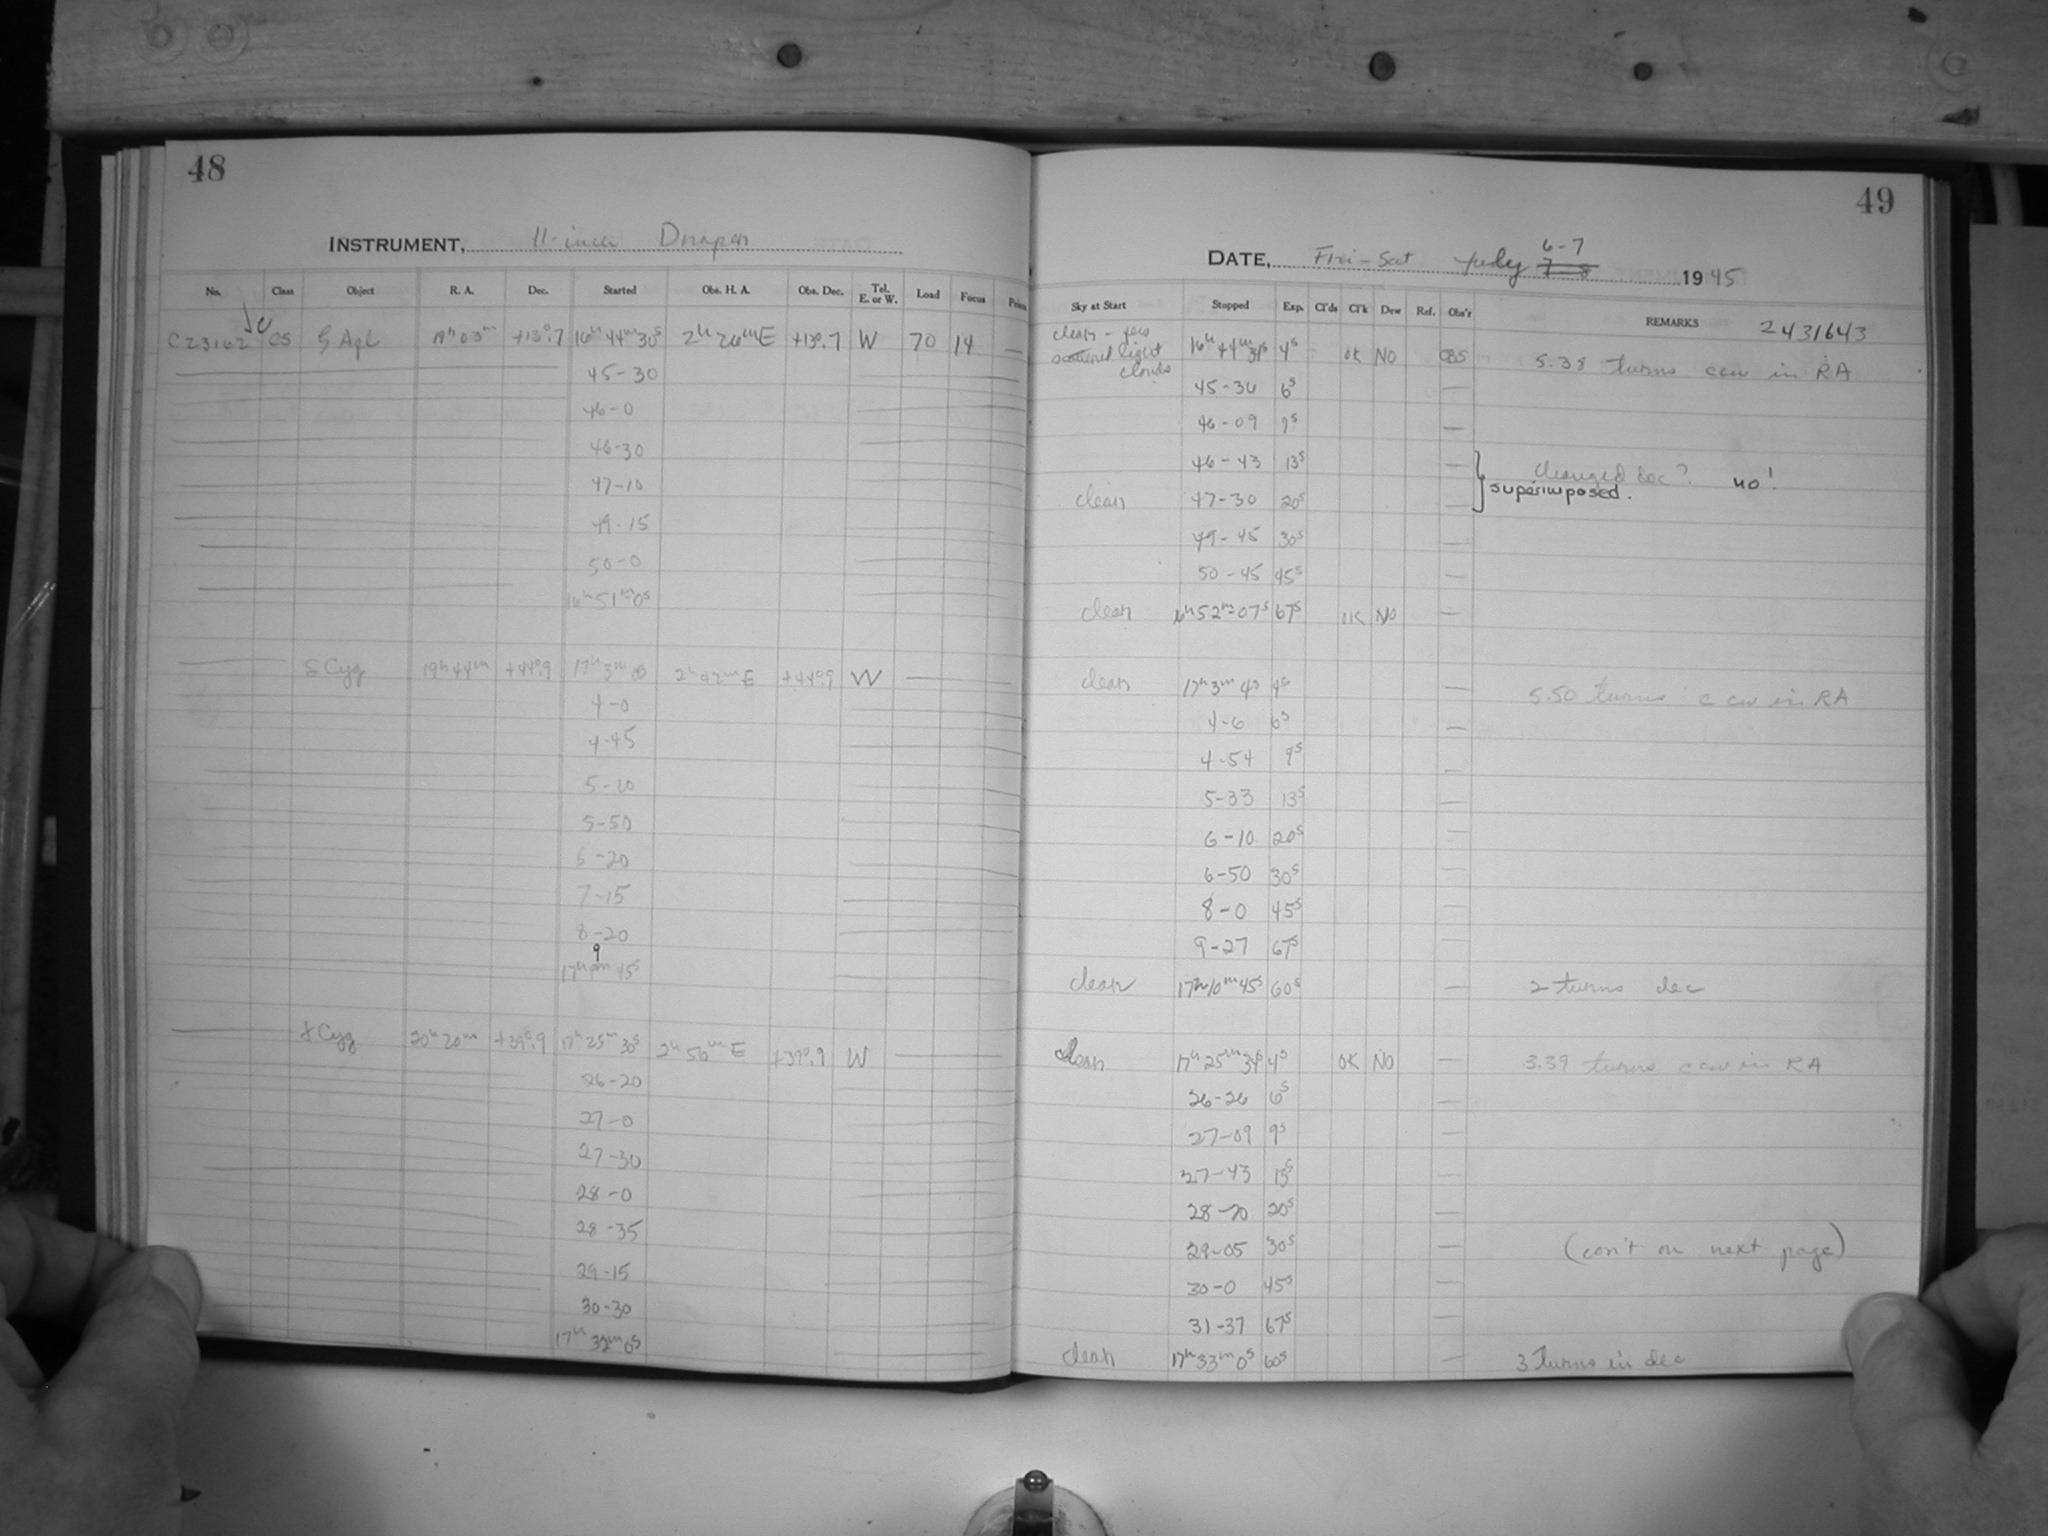 48
INSTRUMENT, 11-inch Draper
No. Class Object R. A. Dec. Started Obs. H. A. Obs. Dec. Tel. E. or W. Load Focus
C23162 CS ζ Aql 19h 03m +13°.7 16h 44m 30s 2h 26m E +13°.7 W 70 14 —
45-30
46-0
46-30
47-10
49-15
50-0
16h 51m 0s
δ Cyg 19h 44m +44°.9 17h 3m 0s 2h 42m E +44°.9 W
4-0
4-45
5-20
5-50
6-20
7-15
8-20
9
17h 45s
γ Cyg 20h 20m +39°.9 17h 25m 30s 2h 56m E +39°.9 W
26-20
27-0
27-30
28-0
28-35
29-15
30-30
17h 32m 0s
49
DATE, Fri-Sat July 7-8 6-7 1945
Sky at Start Stopped Exp. Cl'ds Cl'k Dew Ref. Obs'r REMARKS 2431643
clear - few scattered light clouds 16h 44m 34s 4s OK NO 5.38 turns ccw in RA
45-36 6s —
46-09 9s —
46-43 13s — changed dec? no!
clear 47-30 20s — superimposed.
49-45 30s —
50-45 45s —
clear 16h 52m 07s 67s OK NO —
clear 17h 3m 4s 4s — 5.50 turns ccw in RA
4-6 6s —
4-54 9s —
5-33 13s —
6-10 20s —
6-50 30s —
8-0 45s —
9-27 67s —
clear 17h 10m 45s 60s — 2 turns dec
clear 17h 25m 34s 4s OK NO — 3.39 turns ccw in RA
26-26 6s —
27-09 9s —
27-43 13s —
28-20 20s —
29-05 30s — (con't on next page)
30-0 45s
31-37 67s
clear 17h 33m 0s 60s — 3 turns in dec